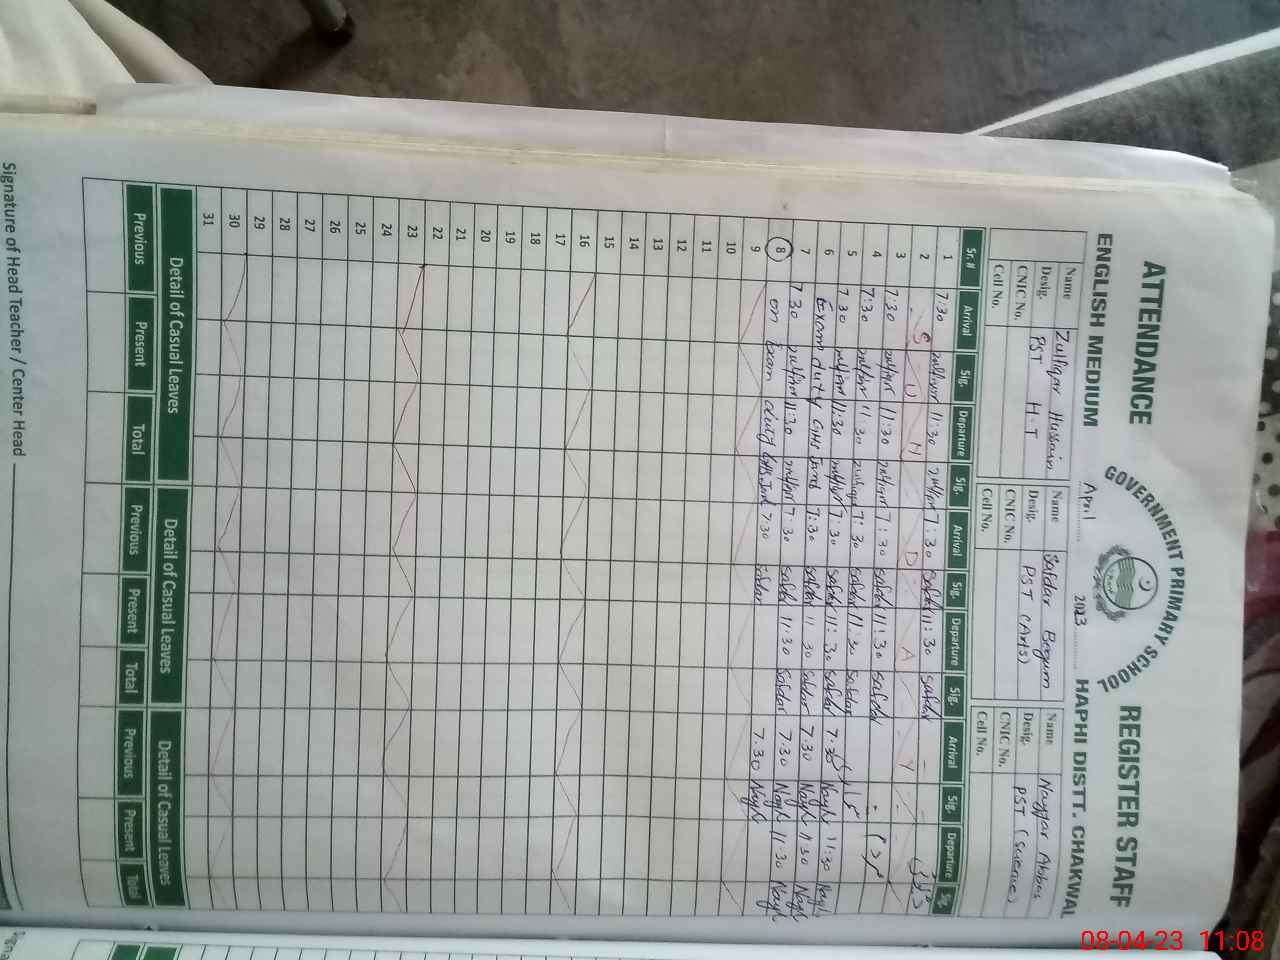 GOVERNMENT PRIMARY SCHOOL
ATTENDANCE REGISTER STAFF
ENGLISH MEDIUM April 2023 HAPHI DISTT. CHAKWAL
Name Zulfiqar Hussain Name Safdar Begum Name Nayyar Abbas
Desig. PST H.T Desig. PST (Arts) Desig. PST (Science)
CNIC No. CNIC No. CNIC No.
Cell No. Cell No. Cell No.
Sr. # Arrival Sig. Departure Sig. Arrival Sig. Departure Sig. Arrival Sig. Departure Sig.
1 7:30 11:30 7:30 Safdar 11:30 Safdar
2 S U N D A Y
3 7:30 11:30 7:30 Safdar 11:30 Safdar
4 7:30 11:30 7:30 Safdar 11:30 Safdar
5 7:30 11:30 7:30 Safdar 11:30 Safdar 7:30 11:30
6 Exam duty GHS 7:30 Safdar 11:30 Safdar 7:30 11:30
7 7:30 11:30 7:30 Safdar 11:30 Safdar 7:30 11:30
8 on Exam duty 7:30 Safdar 7:30
9
10
11
12
13
14
15
16
17
18
19
20
21
22
23
24
25
26
27
28
29
30
31
Detail of Casual Leaves Detail of Casual Leaves Detail of Casual Leaves
Previous Present Total Previous Present Total Previous Present Total
Signature of Head Teacher / Center Head
08-04-23 11:08